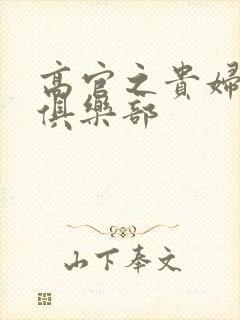 高官之貴婦
俱樂部
山下奉文